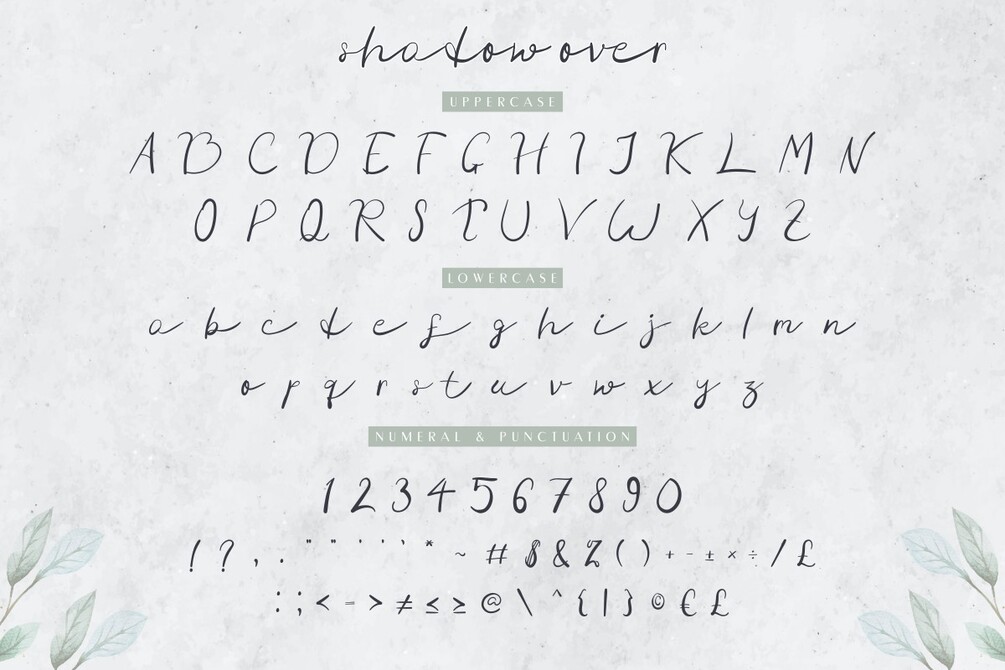 shadow over
UPPERCASE
A B C D E F G H I J K L M N
O P Q R S T U V W X Y Z
LOWERCASE
a b c d e f g h i j k l m n
o p q r s t u v w x y z
NUMERAL & PUNCTUATION
1 2 3 4 5 6 7 8 9 0
! ? , . " " ' ' ' * ~ # $ & % ( ) + - ± × ÷ / £
: ; < = > ≠ ≤ ≥ @ \ ^ { | } © € £